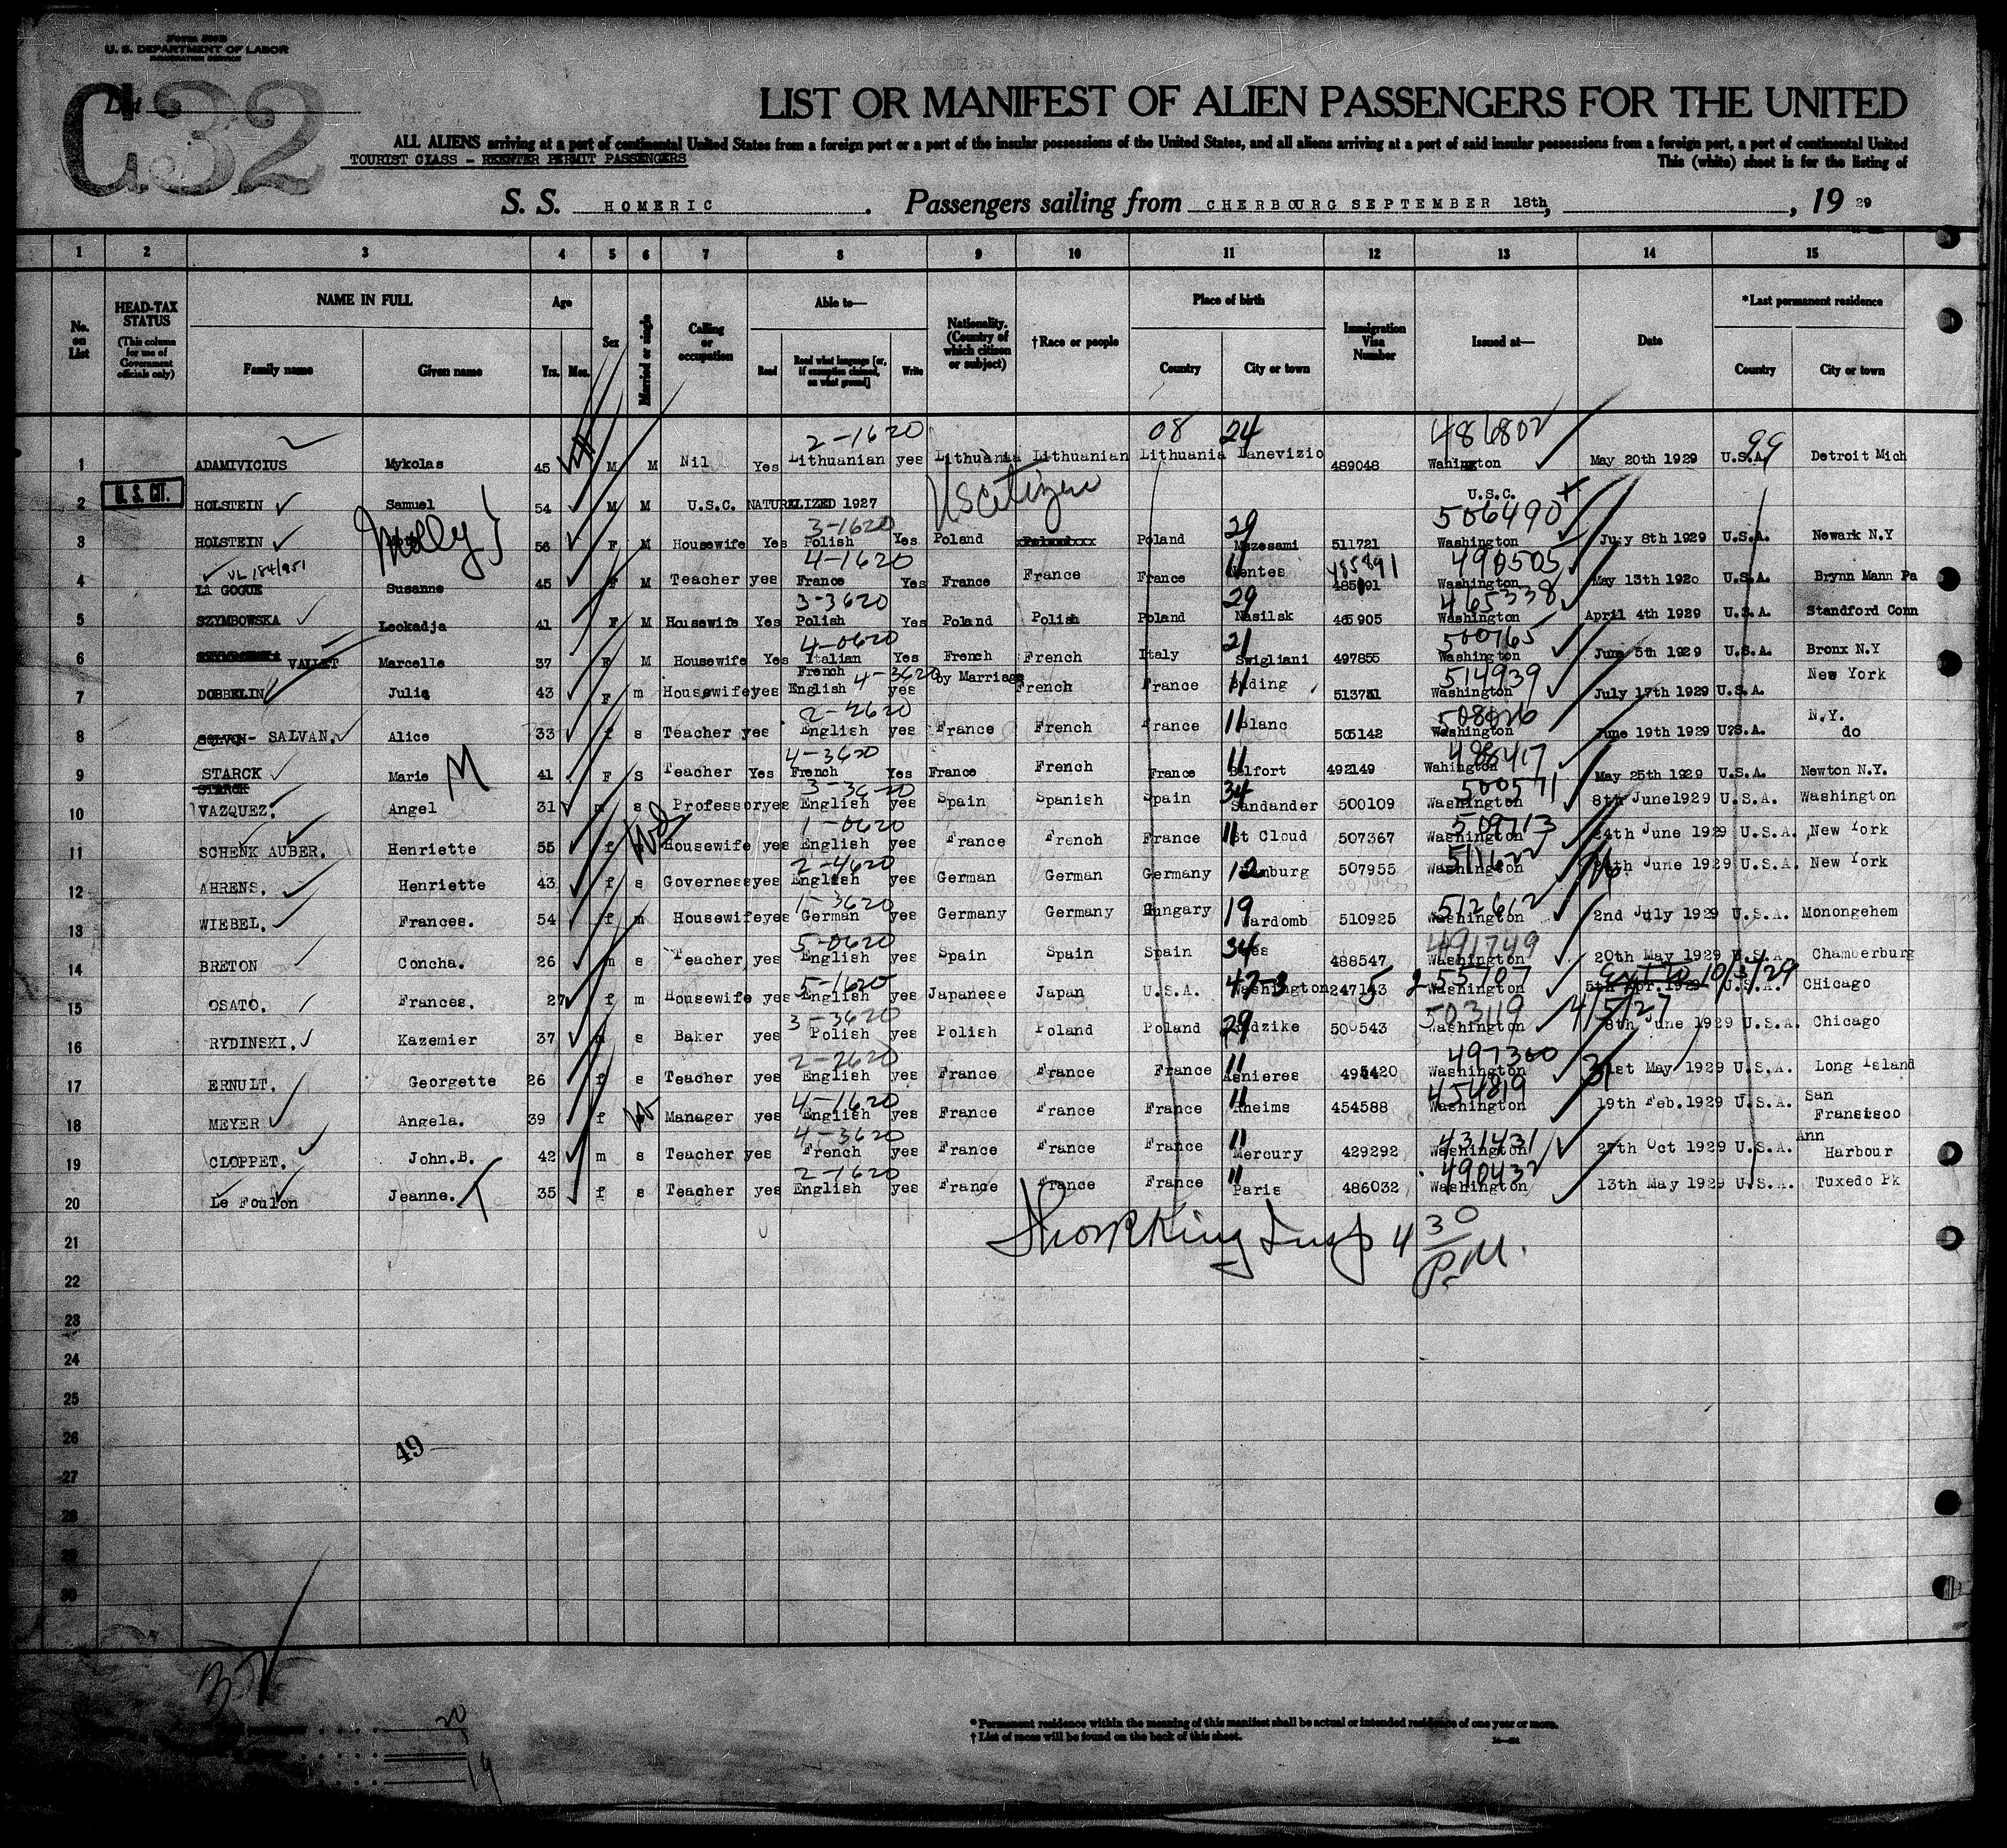 Form 500B
U. S. DEPARTMENT OF LABOR
IMMIGRATION SERVICE
List
G32
LIST OR MANIFEST OF ALIEN PASSENGERS FOR THE UNITED
ALL ALIENS arriving at a port of continental United States from a foreign port or a port of the insular possessions of the United States, and all aliens arriving at a port of said insular possessions from a foreign port, a port of continental United
TOURIST CLASS - REENTER PERMIT PASSENGERS
This (white) sheet is for the listing of
S. S. HOMERIC . Passengers sailing from CHERBOURG SEPTEMBER 18th, , 19 29
1 2 3 4 5 6 7 8 9 10 11 12 13 14 15
No. on List
HEAD-TAX STATUS (This column for use of Government officials only)
NAME IN FULL
Family name Given name
Age
Yrs. Mos.
Sex
Married or single
Calling or occupation
Able to—
Read Read what language [or, if exemption claimed, on what ground] Write
Nationality. (Country of which citizen or subject)
†Race or people
Place of birth
Country City or town
Immigration Visa Number
Issued at—
Date
*Last permanent residence
Country City or town
2-1620 08 24 486802 99
1 ADAMIVICIUS Mykolas 45 M M Nil Yes Lithuanian yes Lithuania Lithuanian Lithuania Panevizio 489048 Wahington May 20th 1929 U.S.A. Detroit Mich
U.S. CIT. U.S.C.
2 HOLSTEIN Samuel 54 M M U.S.C. NATURELIZED 1927 US Citizen
Molly 3-1620 29 506490
3 HOLSTEIN 56 F M Housewife Yes Polish Yes Poland Poland Mszesami 511721 Washington July 8th 1929 U.S.A. Newark N.Y
VL 184/951 4-1620 11 485891 490505
4 LA GOGUE Susanne 45 F M Teacher yes France Yes France France France Nantes 485891 Washington May 13th 1920 U.S.A. Brynn Mann Pa
3-3620 29 465338
5 SZYMBOWSKA Leokadja 41 F M Housewife Yes Polish Yes Poland Polish Poland Nasilsk 465905 Washington April 4th 1929 U.S.A. Standford Conn
4-0620 21 500765
6 VALLET Marcelle 37 F M Housewife Yes Italian Yes French French Italy Swigliani 497855 Washington June 5th 1929 U.S.A. Bronx N.Y
French 4-3620 by Marriage 11 514939 New York
7 DOBBELIN Julia 43 F m Housewife yes English yes French France Eding 513731 Washington July 17th 1929 U.S.A.
2-2620 11 508026 N.Y.
8 SALVAN, Alice 33 f s Teacher yes English yes France French France Blanc 505142 Washington June 19th 1929 U.S.A. do
4-3620 11 488417
9 STARCK Marie M 41 F S Teacher Yes French Yes France French France Belfort 492149 Wahington May 25th 1929 U.S.A. Newton N.Y.
STARCK 3-3620 34 500571
10 VAZQUEZ. Angel 31 m s Professor yes English yes Spain Spanish Spain Sandander 500109 Washington 8th June1929 U.S.A. Washington
1-0620 11 509713
11 SCHENK AUBER. Henriette 55 f Wd Housewife yes English yes France French France St Cloud 507367 Washington 24th June 1929 U.S.A. New York
2-4620 12 511622
12 AHRENS. Henriette 43 f s Governess yes English yes German German Germany Hamburg 507955 Washington 26th June 1929 U.S.A. New York
1-3620 19 512612
13 WIEBEL. Frances. 54 f m Housewife yes German yes Germany Germany Hungary Vardomb 510925 Washington 2nd July 1929 U.S.A. Monongehem
5-0620 34 491749
14 BRETON Concha. 26 m s Teacher yes English yes Spain Spain Spain 488547 Washington 20th May 1929 U.S.A. Chamberburg
5-1620 47-3 5 255707 Ext to 10/3/29
15 OSATO. Frances. 27 f m Housewife yes English yes Japanese Japan U.S.A. Washington 247143 Washington 5th Apr. 1929 U.S.A. CHicago
3-3620 29 503119 4/5/27
16 RYDINSKI. Kazemier 37 m s Baker yes Polish yes Polish Poland Poland Radzike 500543 Washington 8th June 1929 U.S.A. Chicago
2-2620 11 497360
17 ERNULT. Georgette 26 f s Teacher yes English yes France France France Asnieres 495420 Washington 31st May 1929 U.S.A. Long Island
4-1620 11 454819
18 MEYER Angela. 39 f Manager yes English yes France France France Rheims 454588 Washington 19th Feb.1929 U.S.A. San Fransisco
4-3620 11 431431
19 CLOPPET. John.B. 42 m s Teacher yes French yes France France France Mercury 429292 Washington 27th Oct 1929 U.S.A. Ann Harbour
2-1620 11 490432
20 Le Foulon Jeanne. 35 f s Teacher yes English yes France France France Paris 486032 Washington 13th May 1929 U.S.A. Tuxedo Pk
21 King Insp 4 30 P.M.
22
23
24
25
26
49
27
28
29
30
20
19
* Permanent residence within the meaning of this manifest shall be actual or intended residence of one year or more.
† List of races will be found on the back of this sheet.